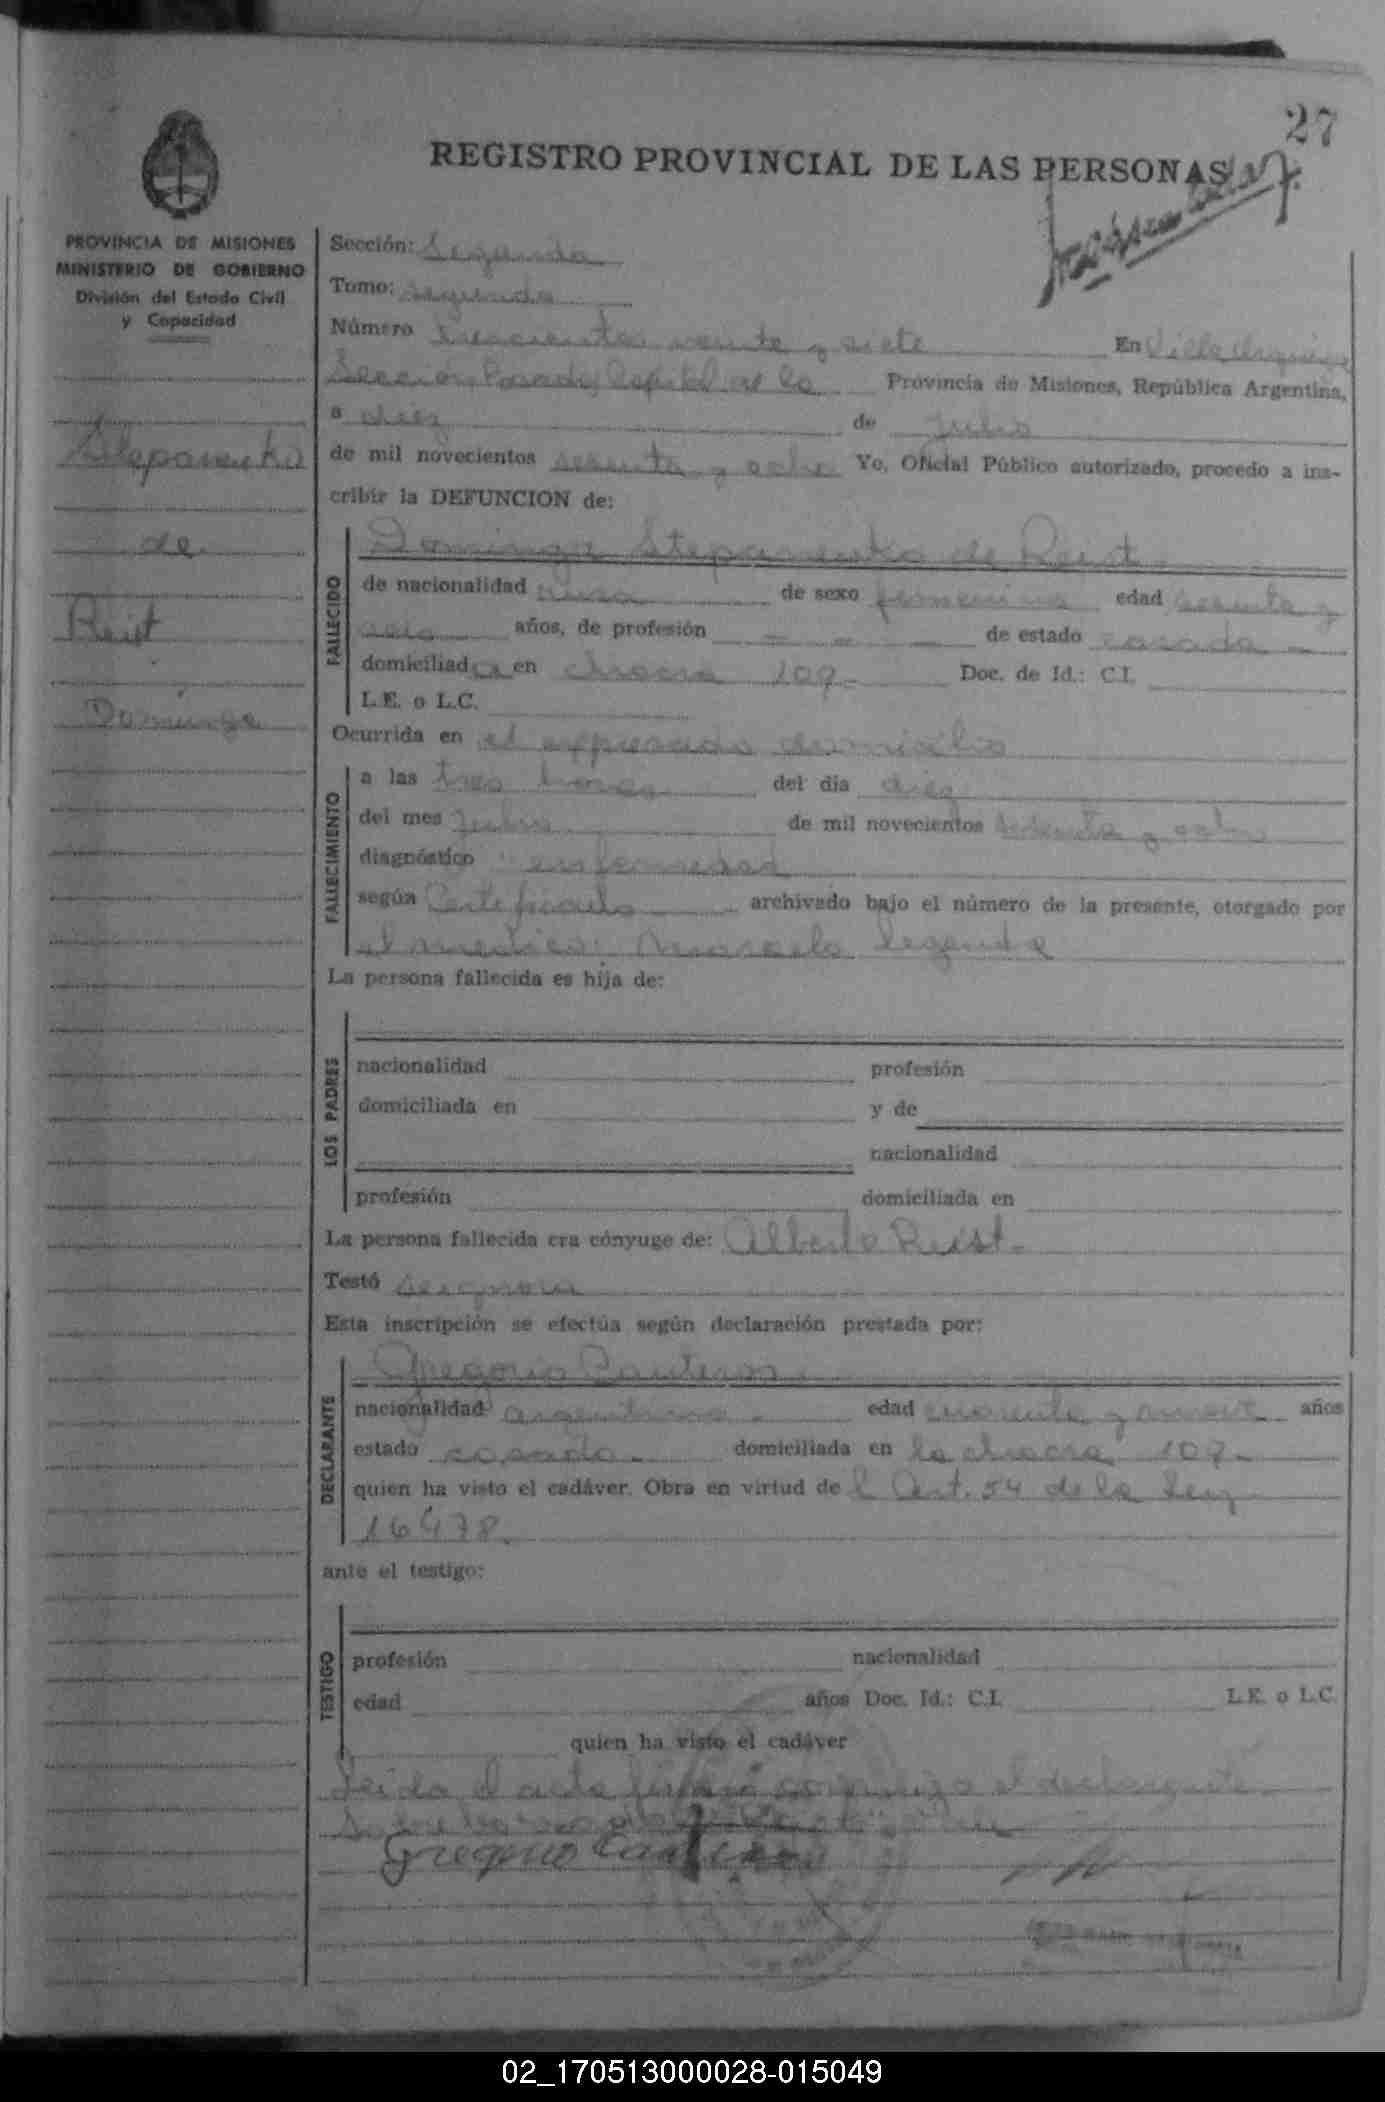 27
REGISTRO PROVINCIAL DE LAS PERSONAS
PROVINCIA DE MISIONES
MINISTERIO DE GOBIERNO
División del Estado Civil
y Capacidad
Stepanenko
de
Reist
Dominga
Sección: Segunda
Tomo: segundo
Número trescientos veinte y siete En Villa Urquiza
Sección Posadas Capital de la Provincia de Misiones, República Argentina,
a diez de Julio
de mil novecientos sesenta y ocho Yo, Oficial Público autorizado, procedo a ins-
cribir la DEFUNCION de:
FALLECIDO
Dominga Stepanenko de Reist
de nacionalidad rusa de sexo femenino edad sesenta y
seis años, de profesión — — — de estado casada —
domiciliada en chacra 109- Doc. de Id.: C.I.
L.E. o L.C.
Ocurrida en el expresado domicilio
FALLECIMIENTO
a las tres horas del día diez
del mes Julio de mil novecientos sesenta y ocho
diagnóstico enfermedad
según Certificado archivado bajo el número de la presente, otorgado por
el medico: Marcelo
La persona fallecida es hija de:
LOS PADRES
nacionalidad profesión
domiciliada en y de
nacionalidad
profesión domiciliada en
La persona fallecida era cónyuge de: Alberto Reist-
Testó se ignora
Esta inscripción se efectúa según declaración prestada por:
DECLARANTE
Gregorio Canteros.
nacionalidad argentino - edad cuarenta y nueve años
estado casado - domiciliada en la chacra 109-
quien ha visto el cadáver. Obra en virtud de l Art. 54 de la Ley
16478.
ante el testigo:
TESTIGO
profesión nacionalidad
edad años Doc. Id.: C.I. L.E. o L.C.
quien ha visto el cadáver
Leida el acta el declarante
Gregorio Canteros
02_170513000028-015049